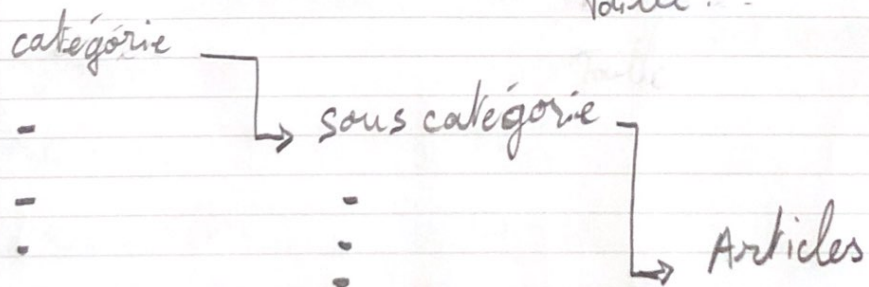 catégorie
sous catégorie
Articles